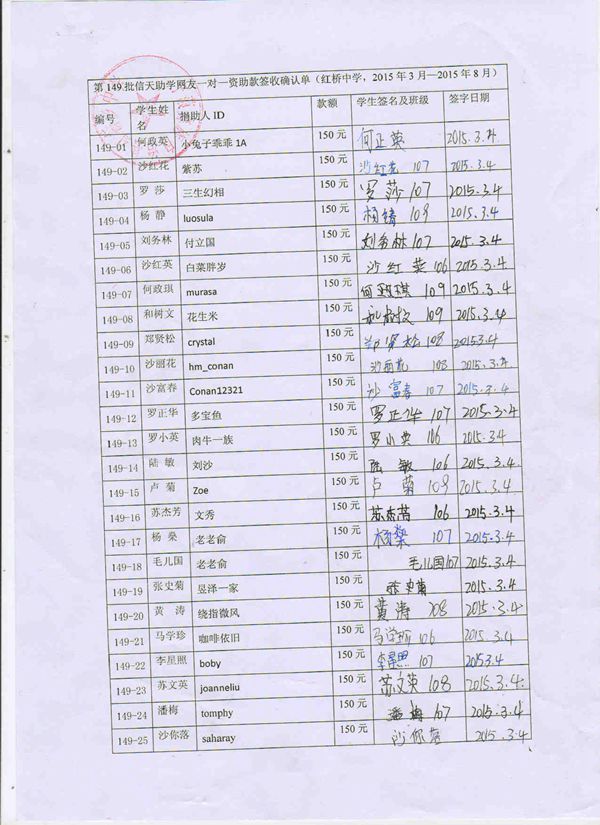 第149批信天助学网友一对一资助款签收确认单（红桥中学，2015年3月—2015年8月）
编号 学生姓名 捐助人ID 款额 学生签名及班级 签字日期
149-01 何政英 小兔子乖乖1A 150元 何正英 2015.3.4
149-02 沙红花 紫苏 150元 沙红花 107 2015.3.4
149-03 罗 莎 三生幻相 150元 罗莎 107 2015.3.4
149-04 杨 静 luosula 150元 杨静 109 2015.3.4
149-05 刘务林 付立国 150元 刘务林 107 2015.3.4
149-06 沙红英 白菜胖岁 150元 沙红英 106 2015.3.4
149-07 何政琪 murasa 150元 何政琪 109 2015.3.4
149-08 和树文 花生米 150元 和树文 109 2015.3.4
149-09 郑贤松 crystal 150元 郑贤松 108 2015.3.4
149-10 沙丽花 hm_conan 150元 沙丽花 108 2015.3.4
149-11 沙富春 Conan12321 150元 沙富春 107 2015.3.4
149-12 罗正华 多宝鱼 150元 罗正华 107 2015.3.4
149-13 罗小英 肉牛一族 150元 罗小英 106 2015.3.4
149-14 陆 敏 刘沙 150元 陆敏 106 2015.3.4.
149-15 卢 菊 Zoe 150元 卢菊 108 2015.3.4
149-16 苏杰芳 文秀 150元 苏杰芳 106 2015.3.4
149-17 杨 燊 老老俞 150元 杨燊 107 2015.3.4
149-18 毛儿国 老老俞 150元 毛儿国 107 2015.3.4
149-19 张史菊 昱泽一家 150元 张史菊 2015.3.4
149-20 黄 涛 绕指微风 150元 黄涛 108 2015.3.4
149-21 马学珍 咖啡依旧 150元 马学珍 106 2015.3.4
149-22 李星照 boby 150元 李星照 107 2015.3.4
149-23 苏文英 joanneliu 150元 苏文英 108 2015.3.4.
149-24 潘梅 tomphy 150元 潘梅 107 2015.3.4
149-25 沙你落 saharay 150元 沙你落 2015.3.4